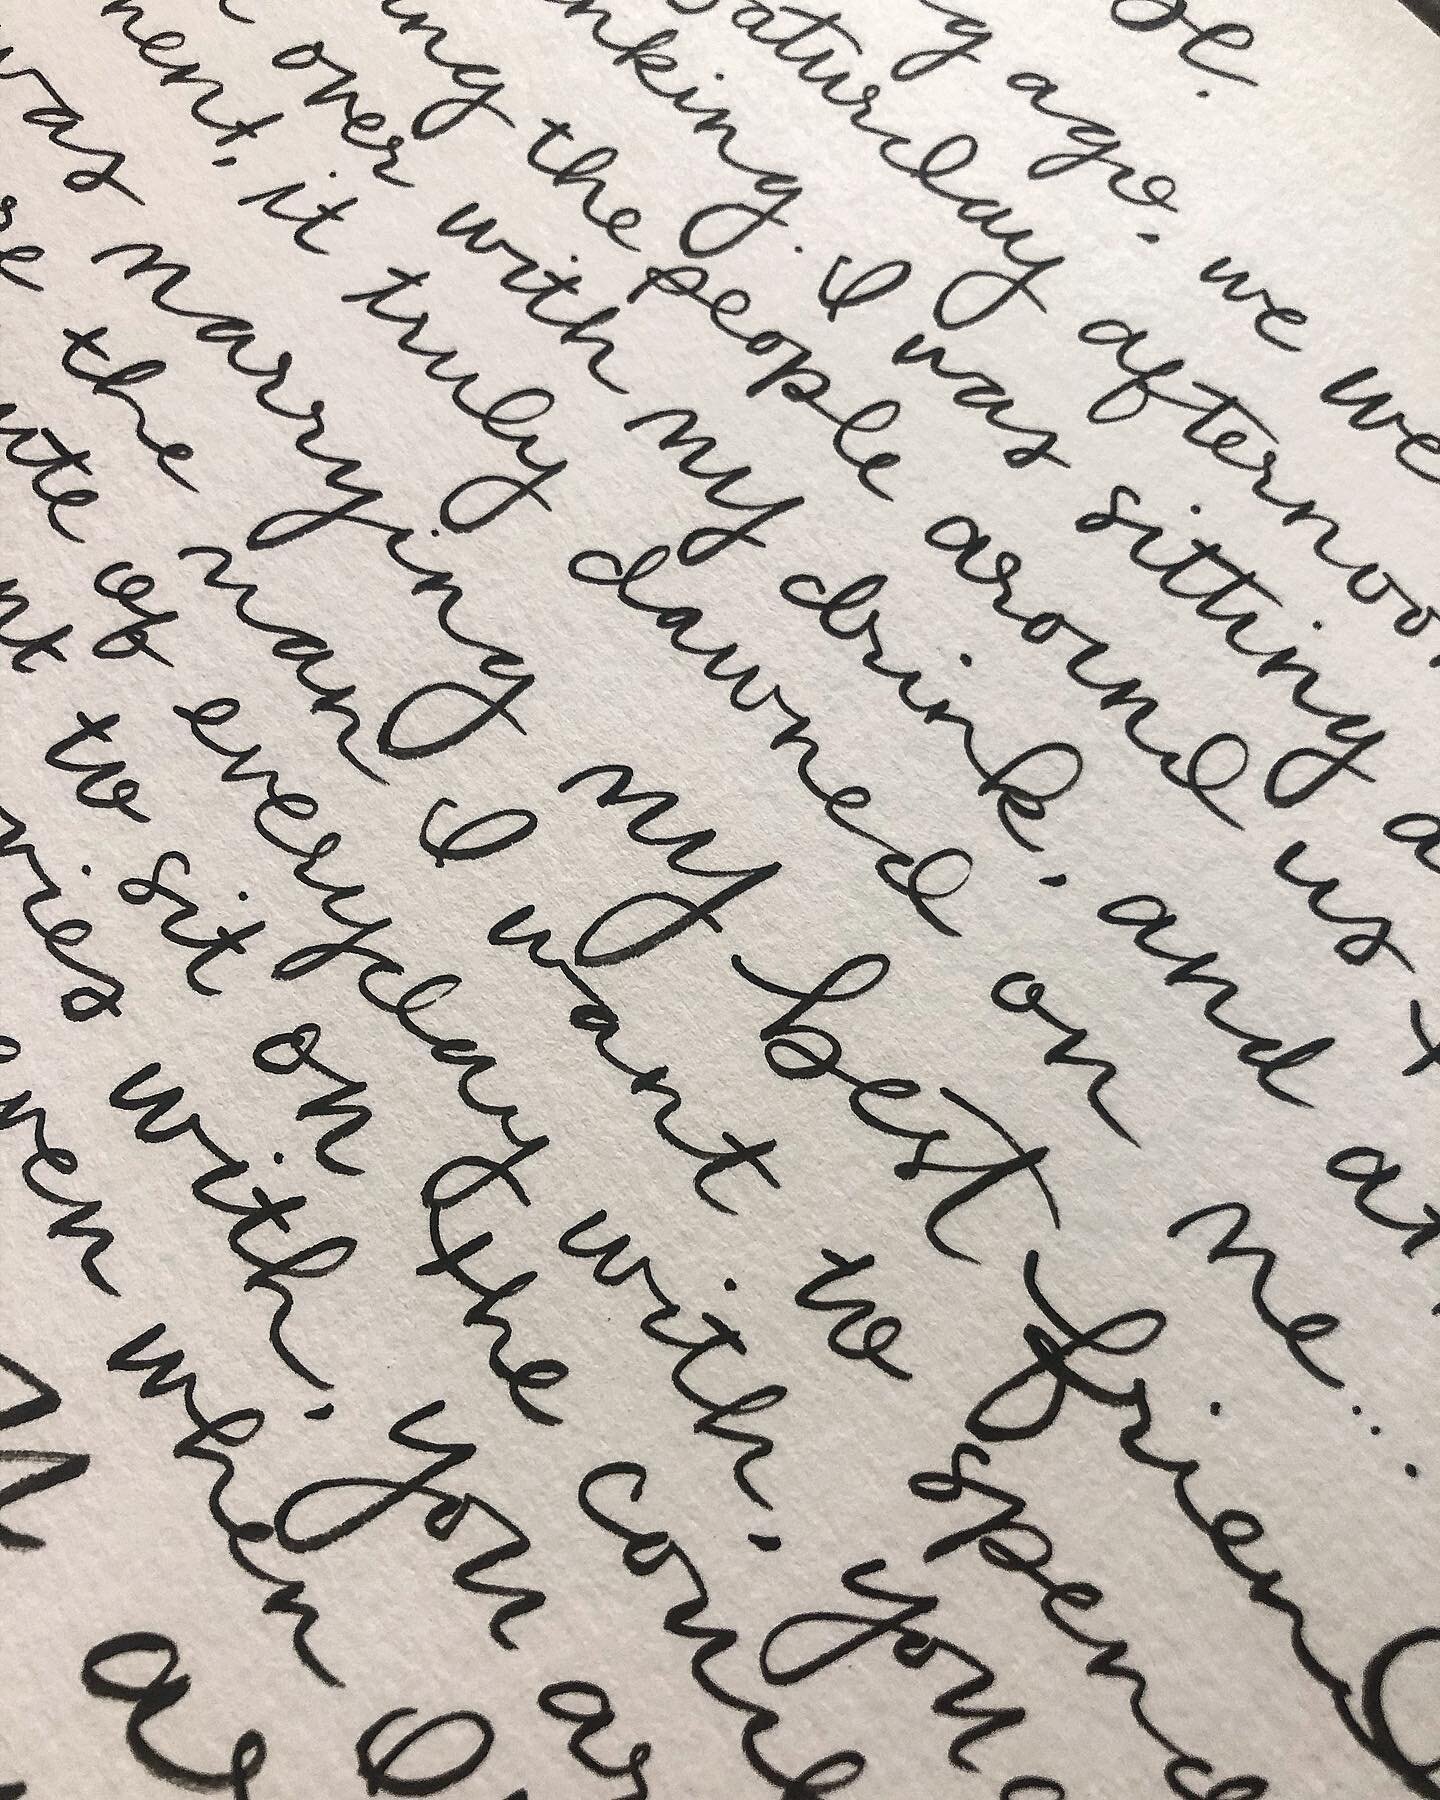 be.
ago, we we
Saturday afternoo
nking. I was sitting a
ing the people around us t
over with my drink, and at
ment, it truly dawned on me...
was marrying my best friend
re the man I want to spend
ute of everyday with, you
nt to sit on the couc
vies with, you ar
ven when I